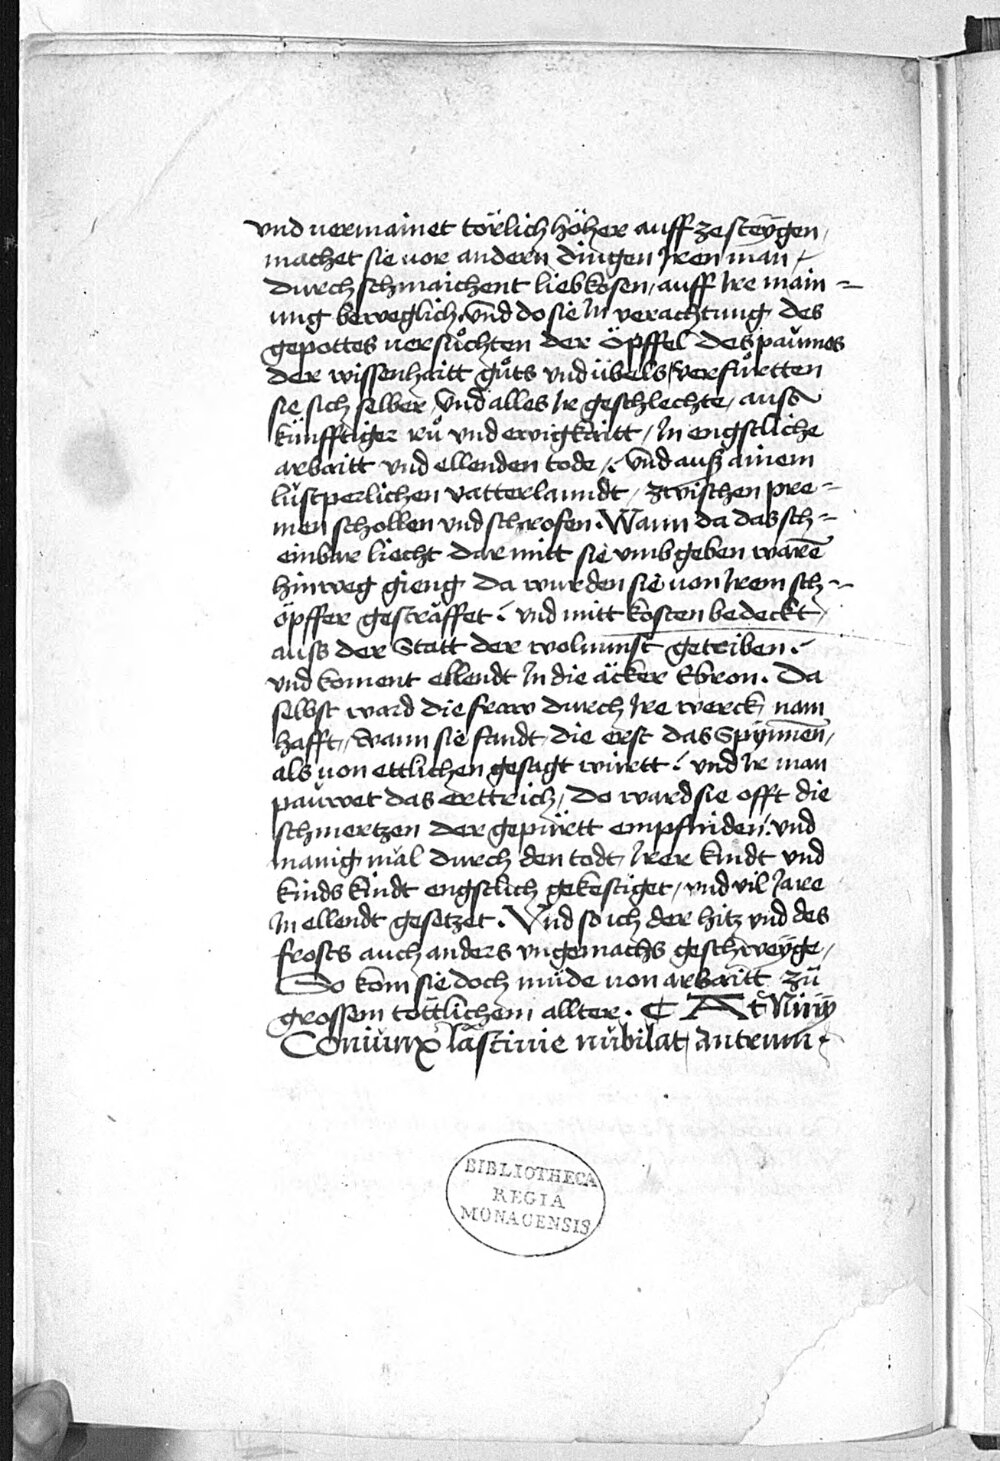 vnd uermainet törlich höher auff ze steÿgen /
machet sie uor andern dingen Jren man /
durch schmaichent liebkosen / auff Jre main =
ung beweglich. Vnd do sie Jn verachtung des
gepottes uersůchten der öpffel des paumes
der wissenhaitt gůts vnd übels / verfůrtten
sie sich selber / Vnd alles Jr geschlechte / auss
künfftiger rů vnd ewigkaitt / Jn engstliche
arbaitt vnd ellenden tode / Vnd auß ainem
lustperlichen vatterlanndt / zwischen pre =
men schollen vnd schrofen. Wann da das sch =
einbar liecht dar mitt sie vmb geben warē
hinweg gieng da wurden sie uon Jrem sch =
öpffer gesträffet / vnd mitt kosten bedeckt /
auss der Statt der wolnunst getriben /
vnd koment ellendt Jn die äcker Ebron. Da
selbst ward die fraw durch Jre werck nam
hafft / Wann sie fandt die erst das Spÿnnen /
als uon ettlichen gesagt württ / vnd Jr man
pauwet das erttrich / do ward sie offt die
schmertzen der gepürtt empfinden / vnd
manig mal durch den todt Jrer kindt vnd
kinds kindt engstlich gekestiget / vnd vil Jare
Jn ellendt gesetzet. Vnd so ich der hitz vnd des
frosts auch anders vngemachs geschweÿge /
So kom sie doch müde uon arbaitt zu
grossem töttlichem allter. ¶ At Ninÿ
Coniunx lascinie nubilat antrum
BIBLIOTHECA
REGIA
MONACENSIS